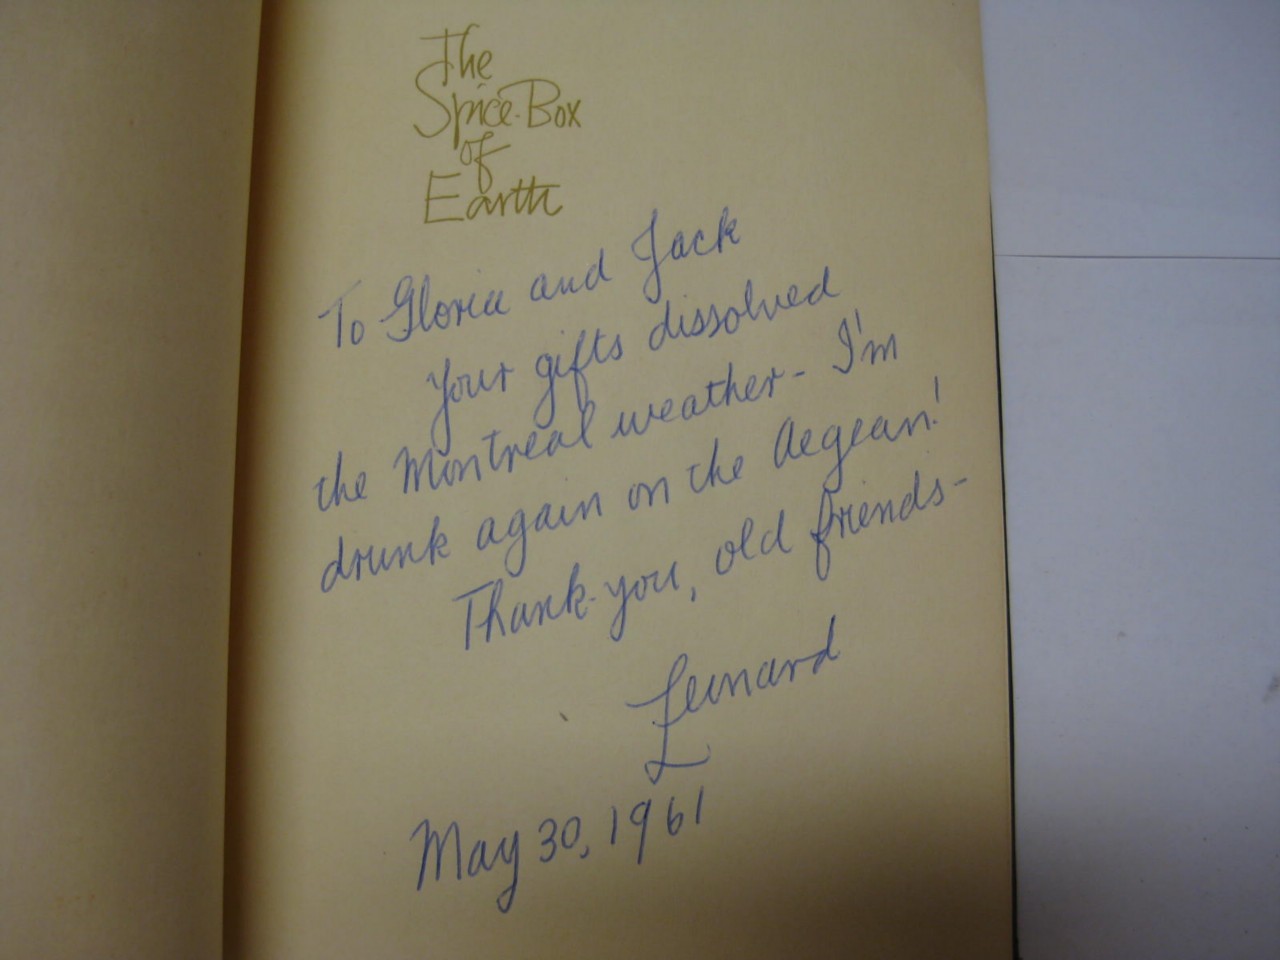 The
Spice-Box
of
Earth
To Gloria and Jack
Your gifts dissolved
the Montreal weather - I'm
drunk again on the Aegean!
Thank-you, old friends -
Leonard
May 30, 1961